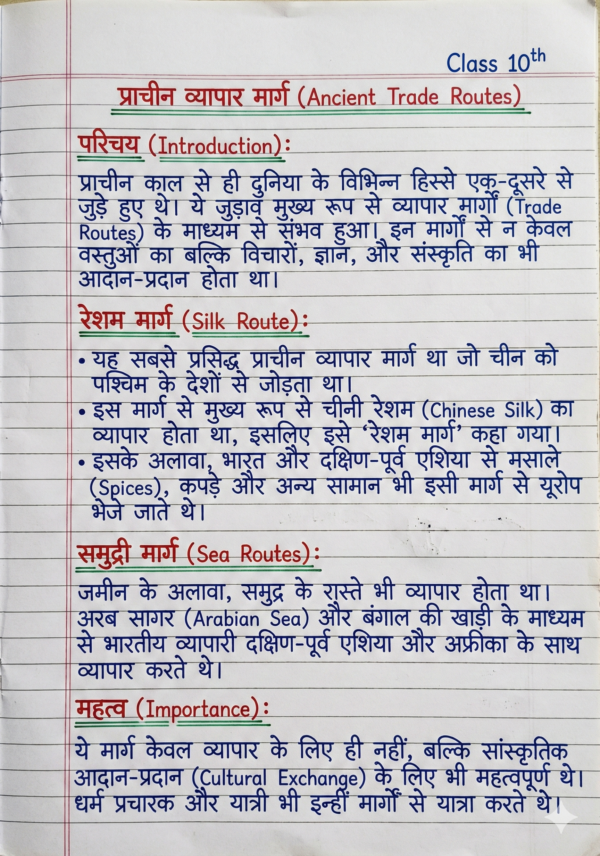 Class 10th
प्राचीन व्यापार मार्ग (Ancient Trade Routes)
परिचय (Introduction):
प्राचीन काल से ही दुनिया के विभिन्न हिस्से एक-दूसरे से
जुड़े हुए थे। ये जुड़ाव मुख्य रूप से व्यापार मार्गों (Trade
Routes) के माध्यम से संभव हुआ। इन मार्गों से न केवल
वस्तुओं का बल्कि विचारों, ज्ञान, और संस्कृति का भी
आदान-प्रदान होता था।
रेशम मार्ग (Silk Route):
• यह सबसे प्रसिद्ध प्राचीन व्यापार मार्ग था जो चीन को
पश्चिम के देशों से जोड़ता था।
• इस मार्ग से मुख्य रूप से चीनी रेशम (Chinese Silk) का
व्यापार होता था, इसलिए इसे ‘रेशम मार्ग’ कहा गया।
• इसके अलावा, भारत और दक्षिण-पूर्व एशिया से मसाले
(Spices), कपड़े और अन्य सामान भी इसी मार्ग से यूरोप
भेजे जाते थे।
समुद्री मार्ग (Sea Routes):
जमीन के अलावा, समुद्र के रास्ते भी व्यापार होता था।
अरब सागर (Arabian Sea) और बंगाल की खाड़ी के माध्यम
से भारतीय व्यापारी दक्षिण-पूर्व एशिया और अफ्रीका के साथ
व्यापार करते थे।
महत्व (Importance):
ये मार्ग केवल व्यापार के लिए ही नहीं, बल्कि सांस्कृतिक
आदान-प्रदान (Cultural Exchange) के लिए भी महत्वपूर्ण थे।
धर्म प्रचारक और यात्री भी इन्हीं मार्गों से यात्रा करते थे।